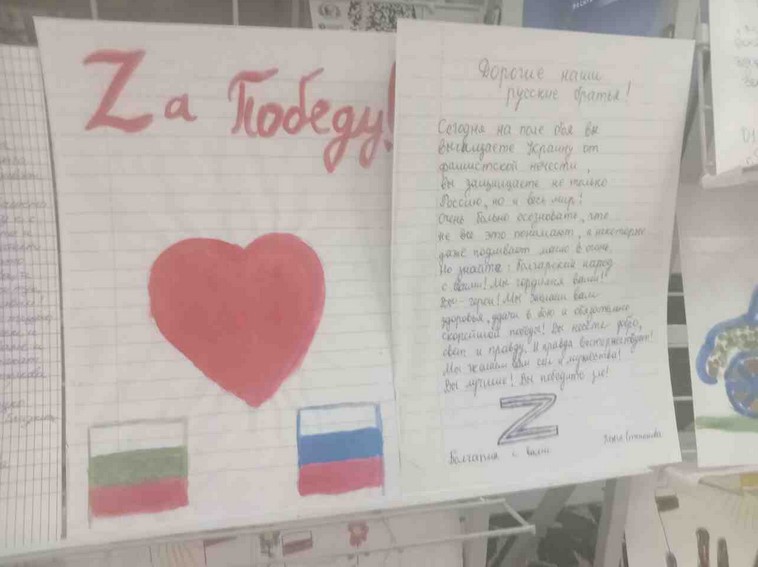 Zа Победу!
Дорогие наши
русские братья!
Сегодня на поле боя вы
вычищаете Украину от
фашистской нечисти,
вы защищаете не только
Россию, но и весь мир!
Очень больно осознавать, что
не все это понимают, а некоторые
даже подливает масло в огонь.
Но знайте: Болгарский народ
с вами! Мы гордимся вами!
Вы - герои! Мы желаем вам
здоровья, удачи в бою и обязательно
скорейшей победы! Вы несете добро,
свет и правду. И правда восторжествует!
Мы желаем вам сил и мужества!
Вы лучшие! Вы победите зло!
Z
Болгария с вами